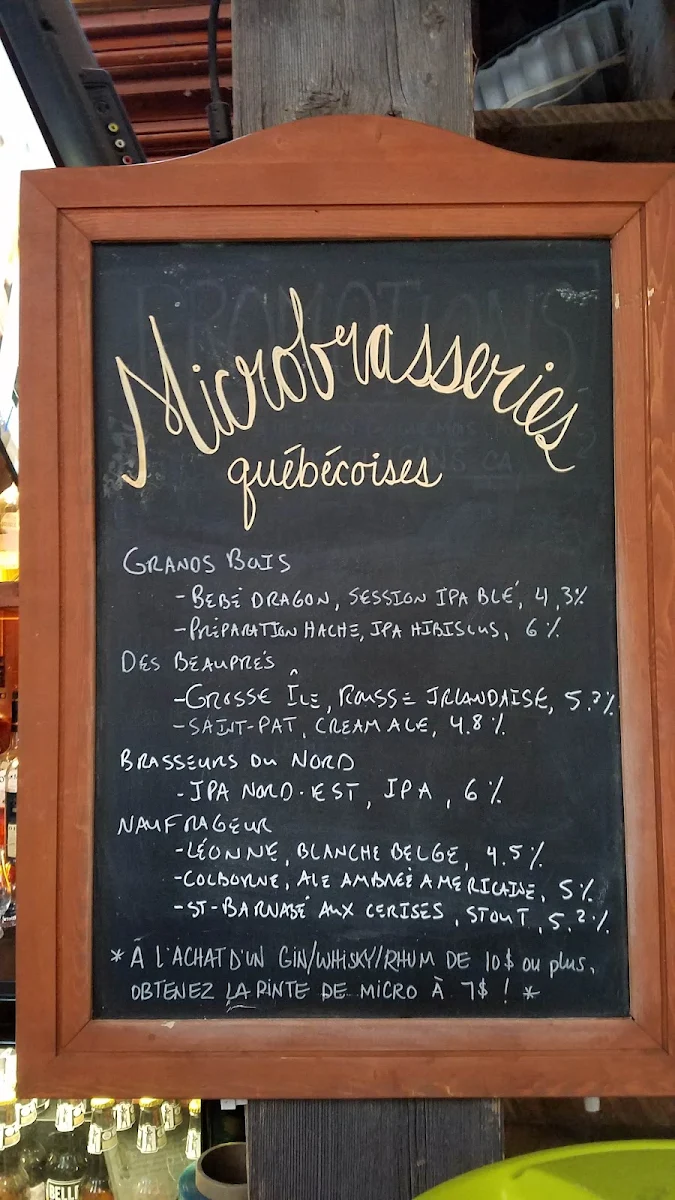 Microbrasseries
québécoises
GRANDS BOIS
- BEBÉ DRAGON, SESSION IPA BLÉ, 4,3%
- PRÉPARATION HACHE, IPA HIBISCUS, 6%
DES BEAUPRÉS
- GROSSE ÎLE, ROUSSE IRLANDAISE,
- SAINT-PAT, CREAM ALE, 4.8%
BRASSEURS DU NORD
- IPA NORD-EST, IPA, 6%
NAUFRAGEUR
- LÉONNE, BLANCHE BELGE, 4.5%
- COLBORNE, ALE AMBRÉE AMÉRICAINE, 5%
- ST-BARNABÉ AUX CERISES, STOUT, 5.2%
* À L'ACHAT D'UN GIN/WHISKY/RHUM DE 10$ ou plus,
OBTENEZ LA PINTE DE MICRO À 7$ ! *
BELLE